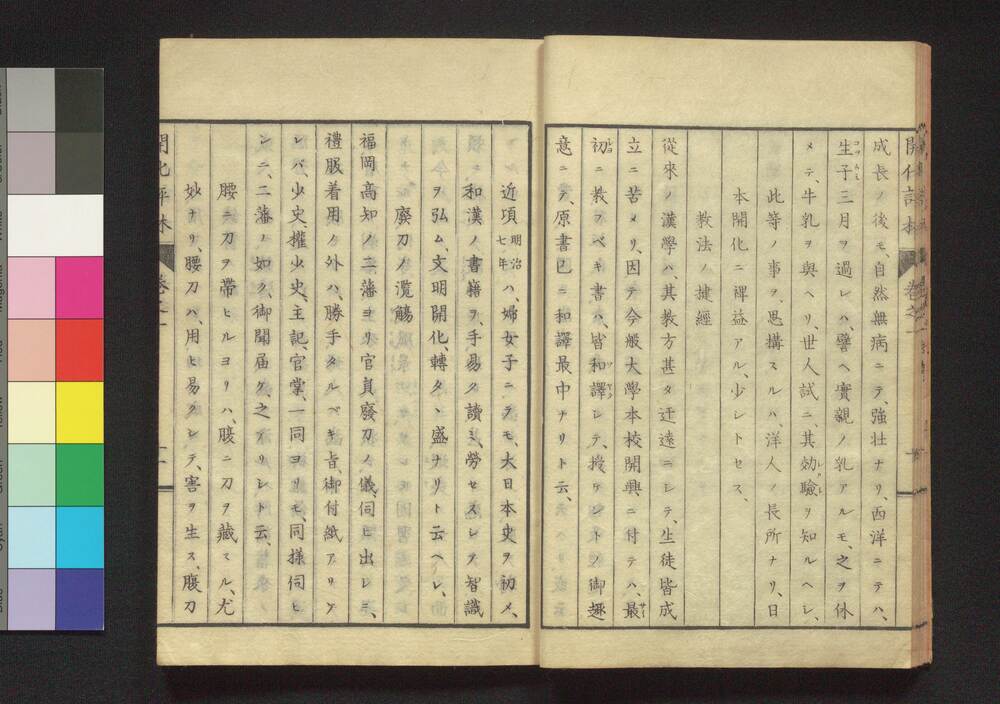 成長ノ後モ、自然無病ニテ、強壮ナリ、西洋ニテハ、
生子三月ヲ過レハ、譬ヘ實親ノ乳アルモ、之ヲ休
メテ、牛乳ヲ與ヘリ、世人試ニ、其効驗ヲ知ルヘシ、
此等ノ事ヲ、思構スルハ、洋人ノ長所ナリ、日
本開化ニ裨益アル、少シトセス、
教法ノ捷經
從來ノ漢學ハ、其教方甚タ迂遠ニシテ、生徒皆成
立ニ苦メリ、因テ今般大學本校開興ニ付テハ、最
初ニ教フベキ書ハ、皆和譯シテ、授ケントノ御趣
意ニテ、原書已ニ和譯最中ナリト云、
開化評林 卷之一
近項明治七年ハ、婦女子ニテモ、大日本史ヲ初メ、
和漢ノ書籍ヲ、手易ク讀ミ、勞セスシテ智識
ヲ弘ム、文明開化、轉タ、盛ナリト云ヘシ、
廢刀ノ濫觴
福岡高知ノ二藩ヨリ官員廢刀ノ儀、伺ヒ出シニ、
禮服着用ノ外ハ、勝手タルベキ旨、御付紙アリケ
レバ、少史、權少史、主記、官掌、一同ヨリモ、同樣伺ヒ
シニ、二藩ノ如ク、御聞届ケ、之アリシト云、
腰ニ刀ヲ帶ヒルヨリハ、腹ニ刀ヲ藏スル、尤
妙ナリ、腰刀ハ、用ヒ易クシテ、害ヲ生ス、腹刀